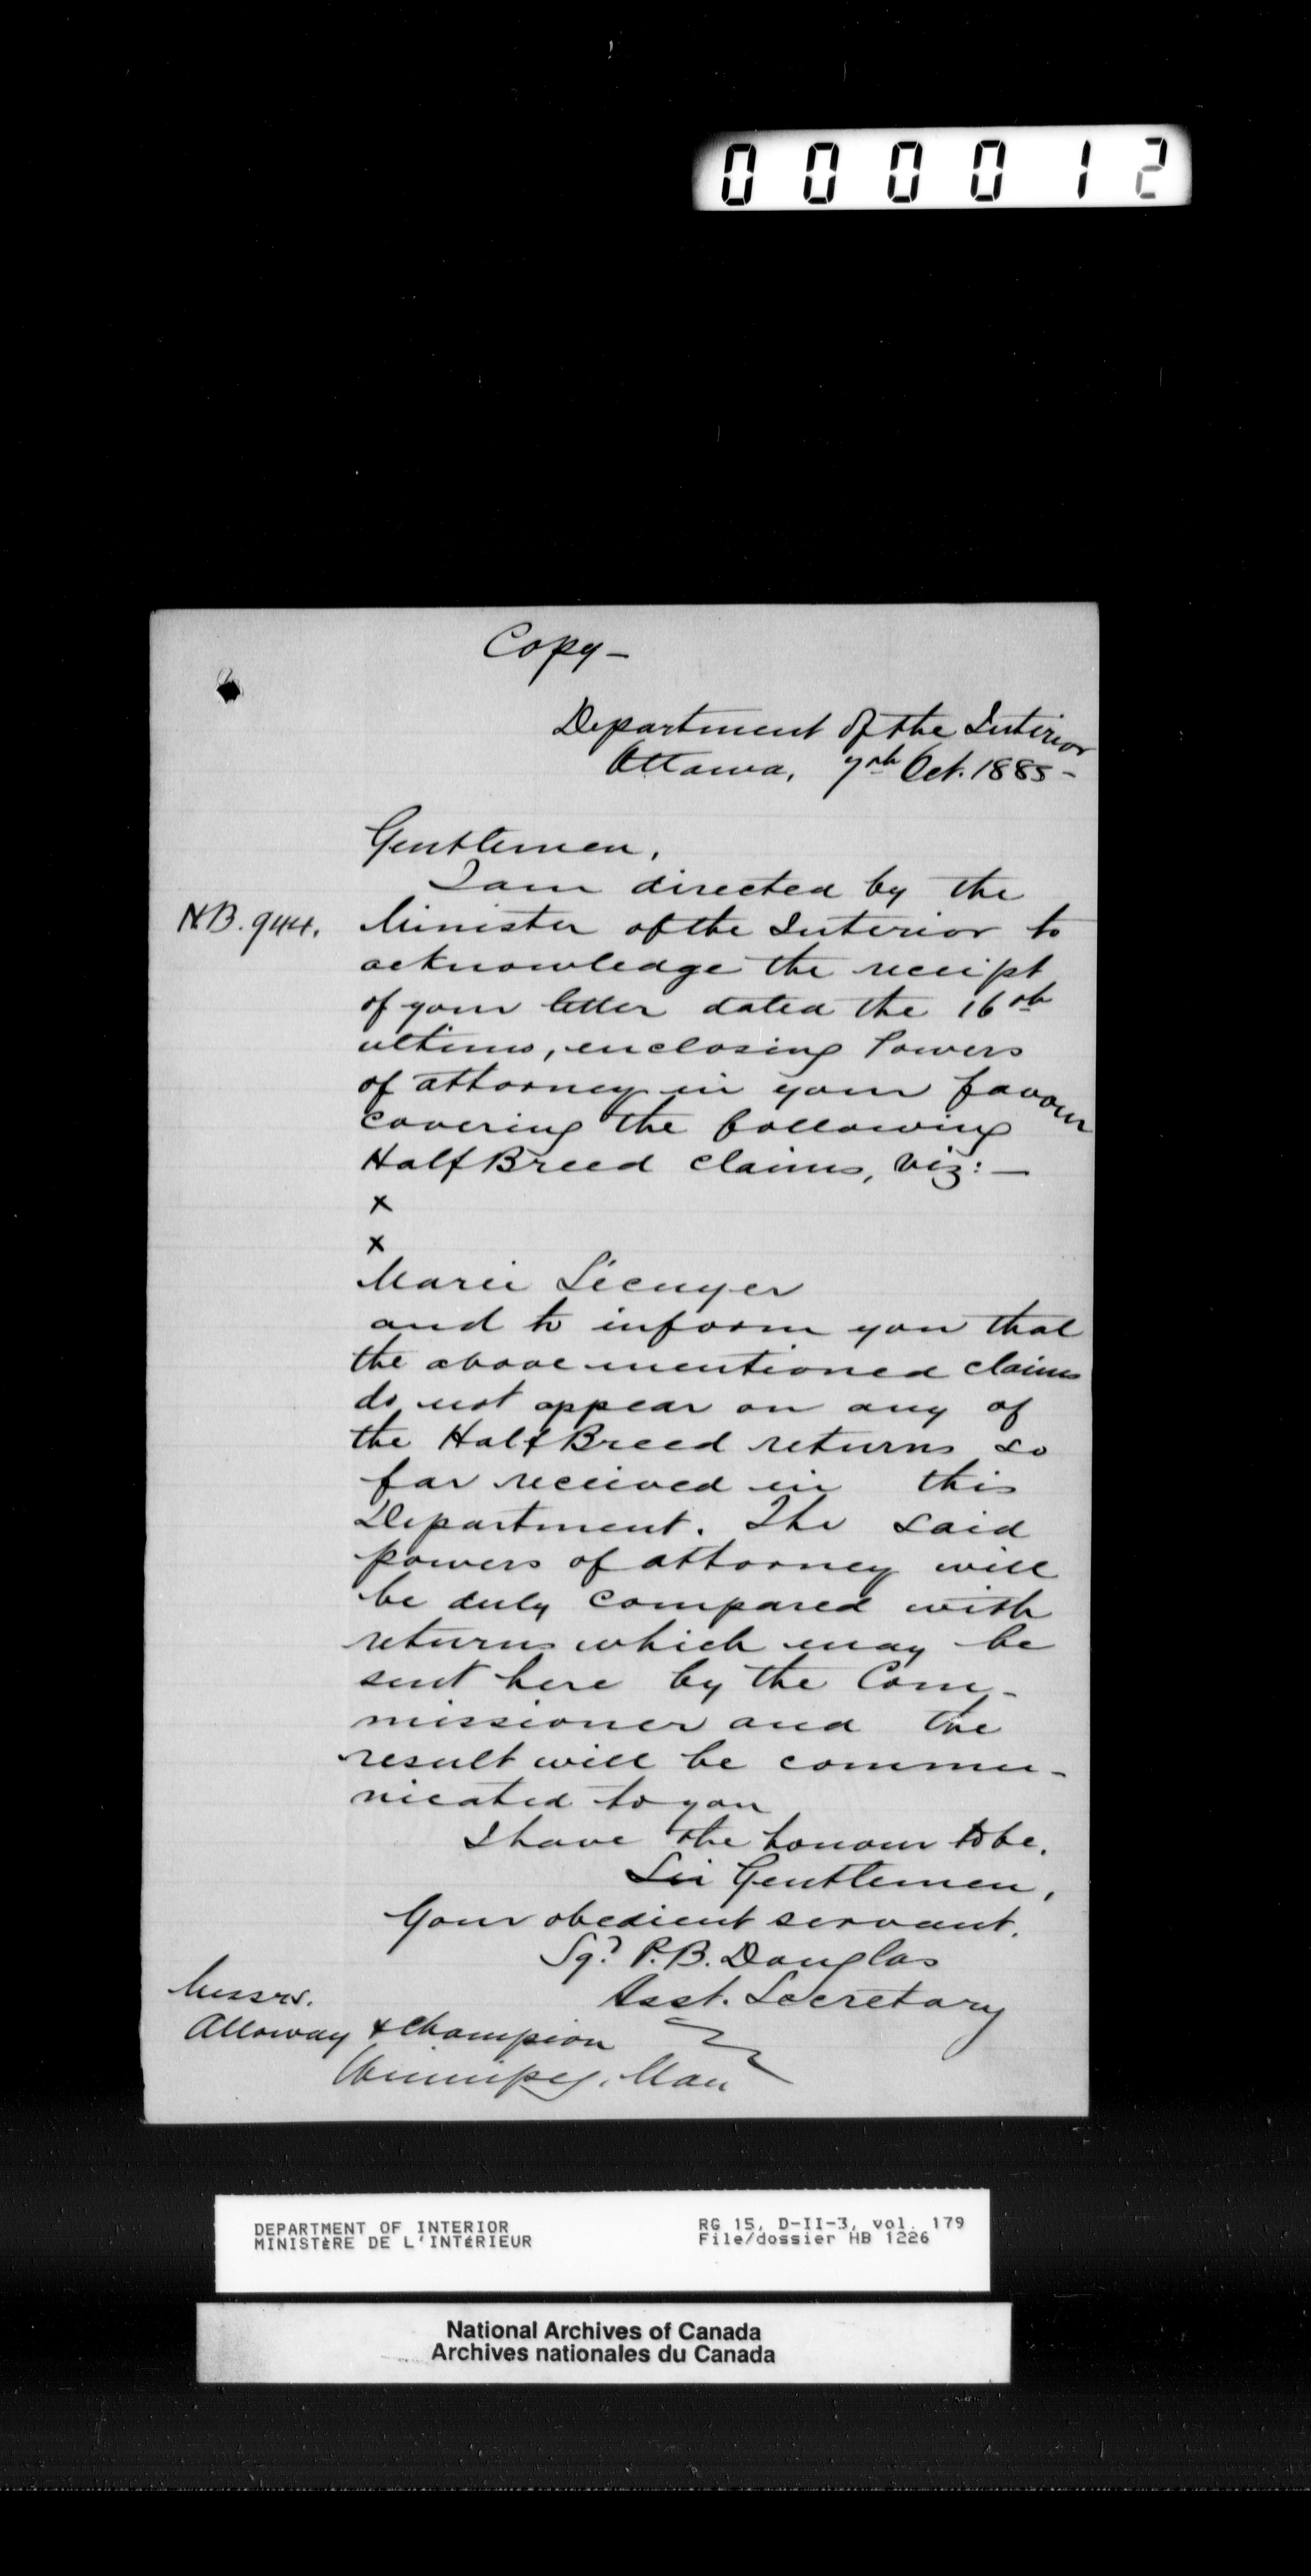 000012
Copy –
Department of the Interior
Ottawa, 7th Oct. 1885 –
Gentlemen,
I am directed by the
H.B. 944. Minister of the Interior to
acknowledge the receipt
of your letter dated the 16th
ultimo, enclosing Powers
of attorney in your favour
covering the following
Half Breed claims, viz: –
x
x
Marie Lécuyer
and to inform you that
the above mentioned claims
do not appear on any of
the Half Breed returns so
far received in this
Department. The said
powers of attorney will
be duly compared with
returns which may be
sent here by the Com-
missioner and the
result will be commu-
nicated to you
I have the honour to be,
Sir Gentlemen,
Your obedient servant.
Sgd P.B. Douglas
Asst. Secretary
Messrs.
Alloway & Champion
Winnipeg, Man
DEPARTMENT OF INTERIOR
MINISTÈRE DE L'INTÉRIEUR
RG 15, D-II-3, vol. 179
File/dossier HB 1226
National Archives of Canada
Archives nationales du Canada